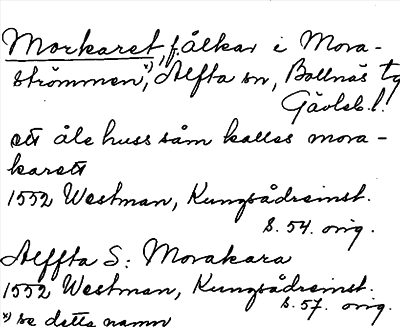 Morkaret, f. ålkar i Mora-
strömmen, x) Alfta sn, Bollnäs tg
Gävleb. l.
ett åle huss såm kalles mora-
karett
1552 Westman, Kungsådreinst.
s. 54. orig.
Alffta S: Morakara
1552 Westman, Kungsådreinst.
s. 57. orig.
x) se detta namn